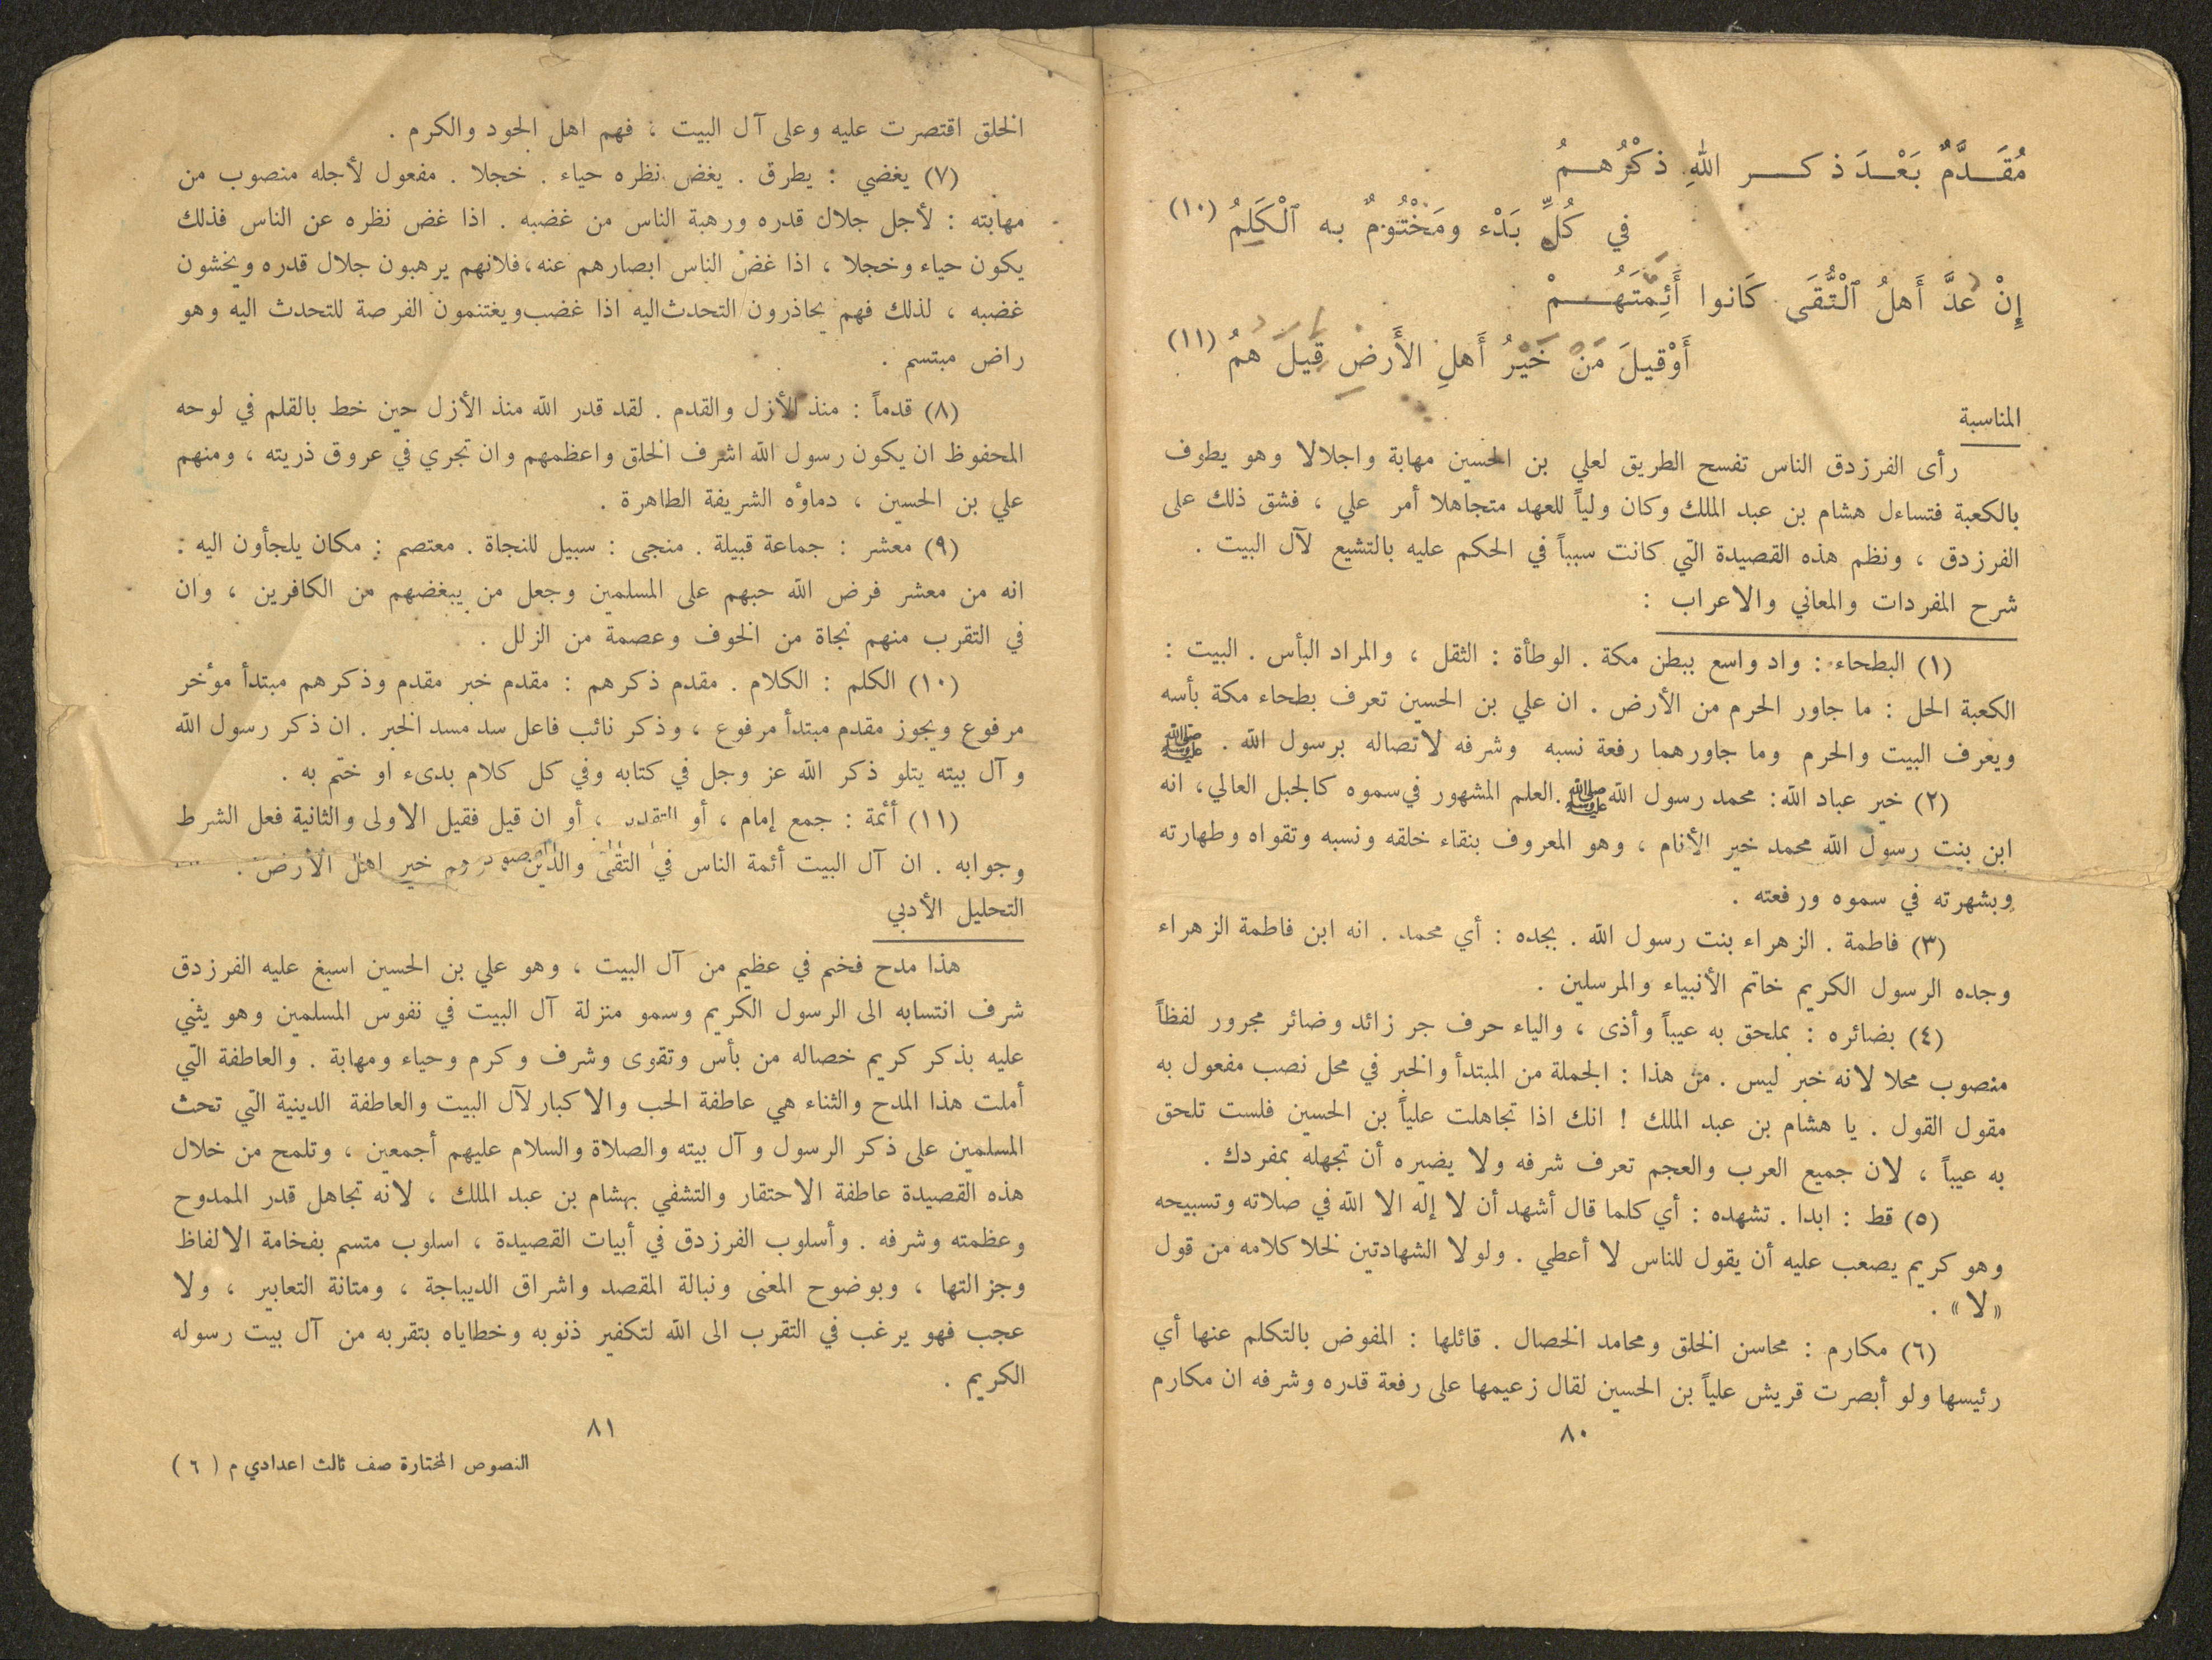 مُقَــدَّمٌ بَعْــدَ ذكــــر اللهِ ذكْرُهــمُ
في كُلِّ بَدْء ومَخْتُومٌ به ٱلْكَلِمُ (١٠)
إِنْ عدَّ أَهلُ ٱلتُّقَى كَانوا أَئِمَّتَهُــــمْ
أَوْقيلَ مَنْ خَيْرُ أَهلِ الأَرضِ قيلَ همُ (١١)
المناسبة
رأى الفرزدق الناس تفسح الطريق لعلي بن الحسين مهابة واجلالا وهو يطوف
بالكعبة فتساءل هشام بن عبد الملك وكان ولياً للعهد متجاهلا أمر علي ، فشق ذلك على
الفرزدق ، ونظم هذه القصيدة التي كانت سبباً في الحكم عليه بالتشيع لآل البيت .
شرح المفردات والمعاني والاعراب :
(١) البطحاء : واد واسع ببطن مكة . الوطأة : الثقل ، والمراد البأس . البيت :
الكعبة الحل : ما جاور الحرم من الأرض . ان علي بن الحسين تعرف بطحاء مكة بأسه
ويعرف البيت والحرم وما جاورهما رفعة نسبه وشرفه لاتصاله برسول الله . ﷺ
(٢) خير عباد الله : محمد رسول الله ﷺ . العلم المشهور في سموه كالجبل العالي ، انه
ابن بنت رسول الله محمد خير الأنام ، وهو المعروف بنقاء خلقه ونسبه وتقواه وطهارته
وبشهرته في سموه ورفعته .
(٣) فاطمة . الزهراء بنت رسول الله . بجده : أي محمد . انه ابن فاطمة الزهراء
وجده الرسول الكريم خاتم الأنبياء والمرسلين .
(٤) بضائره : بملحق به عيباً وأذى ، والياء حرف جر زائد وضائر مجرور لفظاً
منصوب محلا لانه خبر ليس . من هذا : الجملة من المبتدأ والخبر في محل نصب مفعول به
مقول القول . يا هشام بن عبد الملك ! انك اذا تجاهلت علياً بن الحسين فلست تلحق
به عيباً ، لان جميع العرب والعجم تعرف شرفه ولا يضيره أن تجهله بمفردك .
(٥) قط : ابدا . تشهده : أي كلما قال أشهد أن لا إله الا الله في صلاته وتسبيحه
وهو كريم يصعب عليه أن يقول للناس لا أعطي . ولولا الشهادتين لخلا كلامه من قول
«لا» .
(٦) مكارم : محاسن الخلق ومحامد الخصال . قائلها : المفوض بالتكلم عنها أي
رئيسها ولو أبصرت قريش علياً بن الحسين لقال زعيمها على رفعة قدره وشرفه ان مكارم
٨٠
الخلق اقتصرت عليه وعلى آل البيت ، فهم اهل الجود والكرم .
(٧) يغضي : يطرق . يغض نظره حياء . خجلا . مفعول لأجله منصوب من
مهابته : لأجل جلال قدره ورهبة الناس من غضبه . اذا غض نظره عن الناس فذلك
يكون حياء وخجلا ، اذا غض الناس ابصارهم عنه ، فلانهم يرهبون جلال قدره ويخشون
غضبه ، لذلك فهم يحاذرون التحدث اليه اذا غضب ويغتنمون الفرصة للتحدث اليه وهو
راض مبتسم .
(٨) قدماً : منذ الأزل والقدم . لقد قدر الله منذ الأزل حين خط بالقلم في لوحه
المحفوظ ان يكون رسول الله اشرف الخلق واعظمهم وان تجري في عروق ذريته ، ومنهم
علي بن الحسين ، دماؤه الشريفة الطاهرة .
(٩) معشر : جماعة قبيلة . منجى : سبيل للنجاة . معتصم : مكان يلجأون اليه :
انه من معشر فرض الله حبهم على المسلمين وجعل من يبغضهم من الكافرين ، وان
في التقرب منهم نجاة من الخوف وعصمة من الزلل .
(١٠) الكلم : الكلام . مقدم ذكرهم : مقدم خبر مقدم وذكرهم مبتدأ مؤخر
مرفوع ويجوز مقدم مبتدأ مرفوع ، وذكر نائب فاعل سد مسد الخبر . ان ذكر رسول الله
وآل بيته يتلو ذكر الله عز وجل في كتابه وفي كل كلام بدىء او ختم به .
(١١) أئمة : جمع إمام ، أو ، أو ان قيل فقيل الاولى والثانية فعل الشرط
وجوابه . ان آل البيت أئمة الناس في التقى والدين خير اهل الأرض .
التحليل الأدبي
هذا مدح فخم في عظيم من آل البيت ، وهو علي بن الحسين اسبغ عليه الفرزدق
شرف انتسابه الى الرسول الكريم وسمو منزلة آل البيت في نفوس المسلمين وهو يثني
عليه بذكر كريم خصاله من بأس وتقوى وشرف وكرم وحياء ومهابة . والعاطفة التي
أملت هذا المدح والثناء هي عاطفة الحب والاكبار لآل البيت والعاطفة الدينية التي تحث
المسلمين على ذكر الرسول وآل بيته والصلاة والسلام عليهم أجمعين ، وتلمح من خلال
هذه القصيدة عاطفة الاحتقار والتشفي بهشام بن عبد الملك ، لانه تجاهل قدر الممدوح
وعظمته وشرفه . وأسلوب الفرزدق في أبيات القصيدة ، اسلوب متسم بفخامة الالفاظ
وجزالتها ، وبوضوح المعنى ونبالة المقصد واشراق الديباجة ، ومتانة التعابير ، ولا
عجب فهو يرغب في التقرب الى الله لتكفير ذنوبه وخطاياه بتقربه من آل بيت رسوله
الكريم .
٨١
النصوص المختارة صف ثالث اعدادي م ( ٦ )